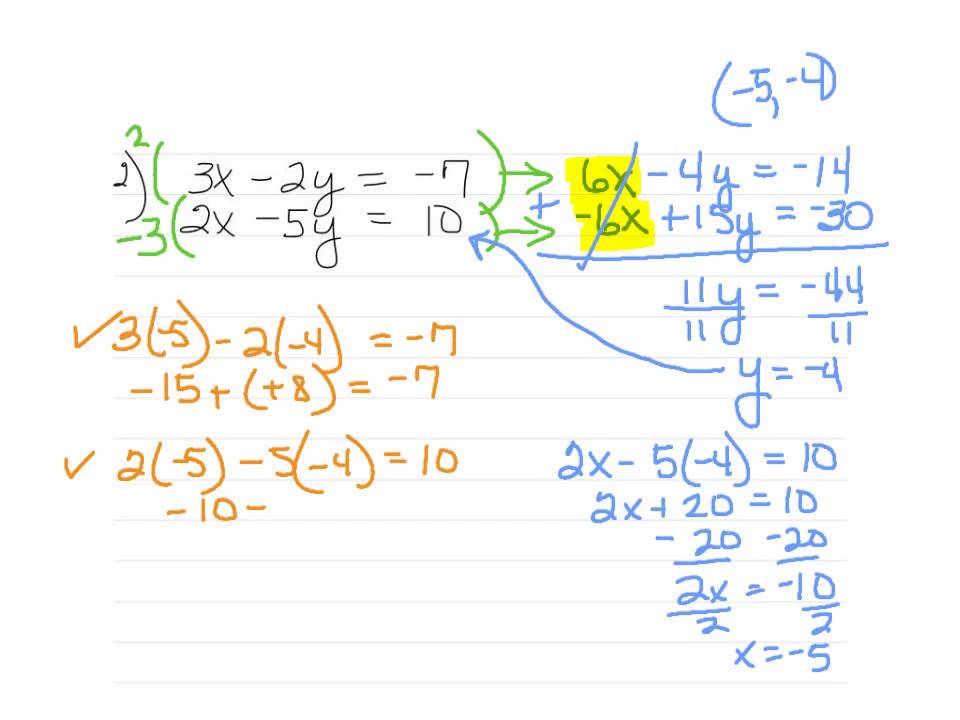 (-5, -4)
2) 2( 3x - 2y = -7 ) → 6x - 4y = -14
-3( 2x - 5y = 10 ) → + -6x + 15y = -30
11y = -44
11 11
y = -4
✓ 3(-5) - 2(-4) = -7
-15 + (+8) = -7
✓ 2(-5) - 5(-4) = 10
-10 -
2x - 5(-4) = 10
2x + 20 = 10
- 20 -20
2x = -10
2 2
x = -5